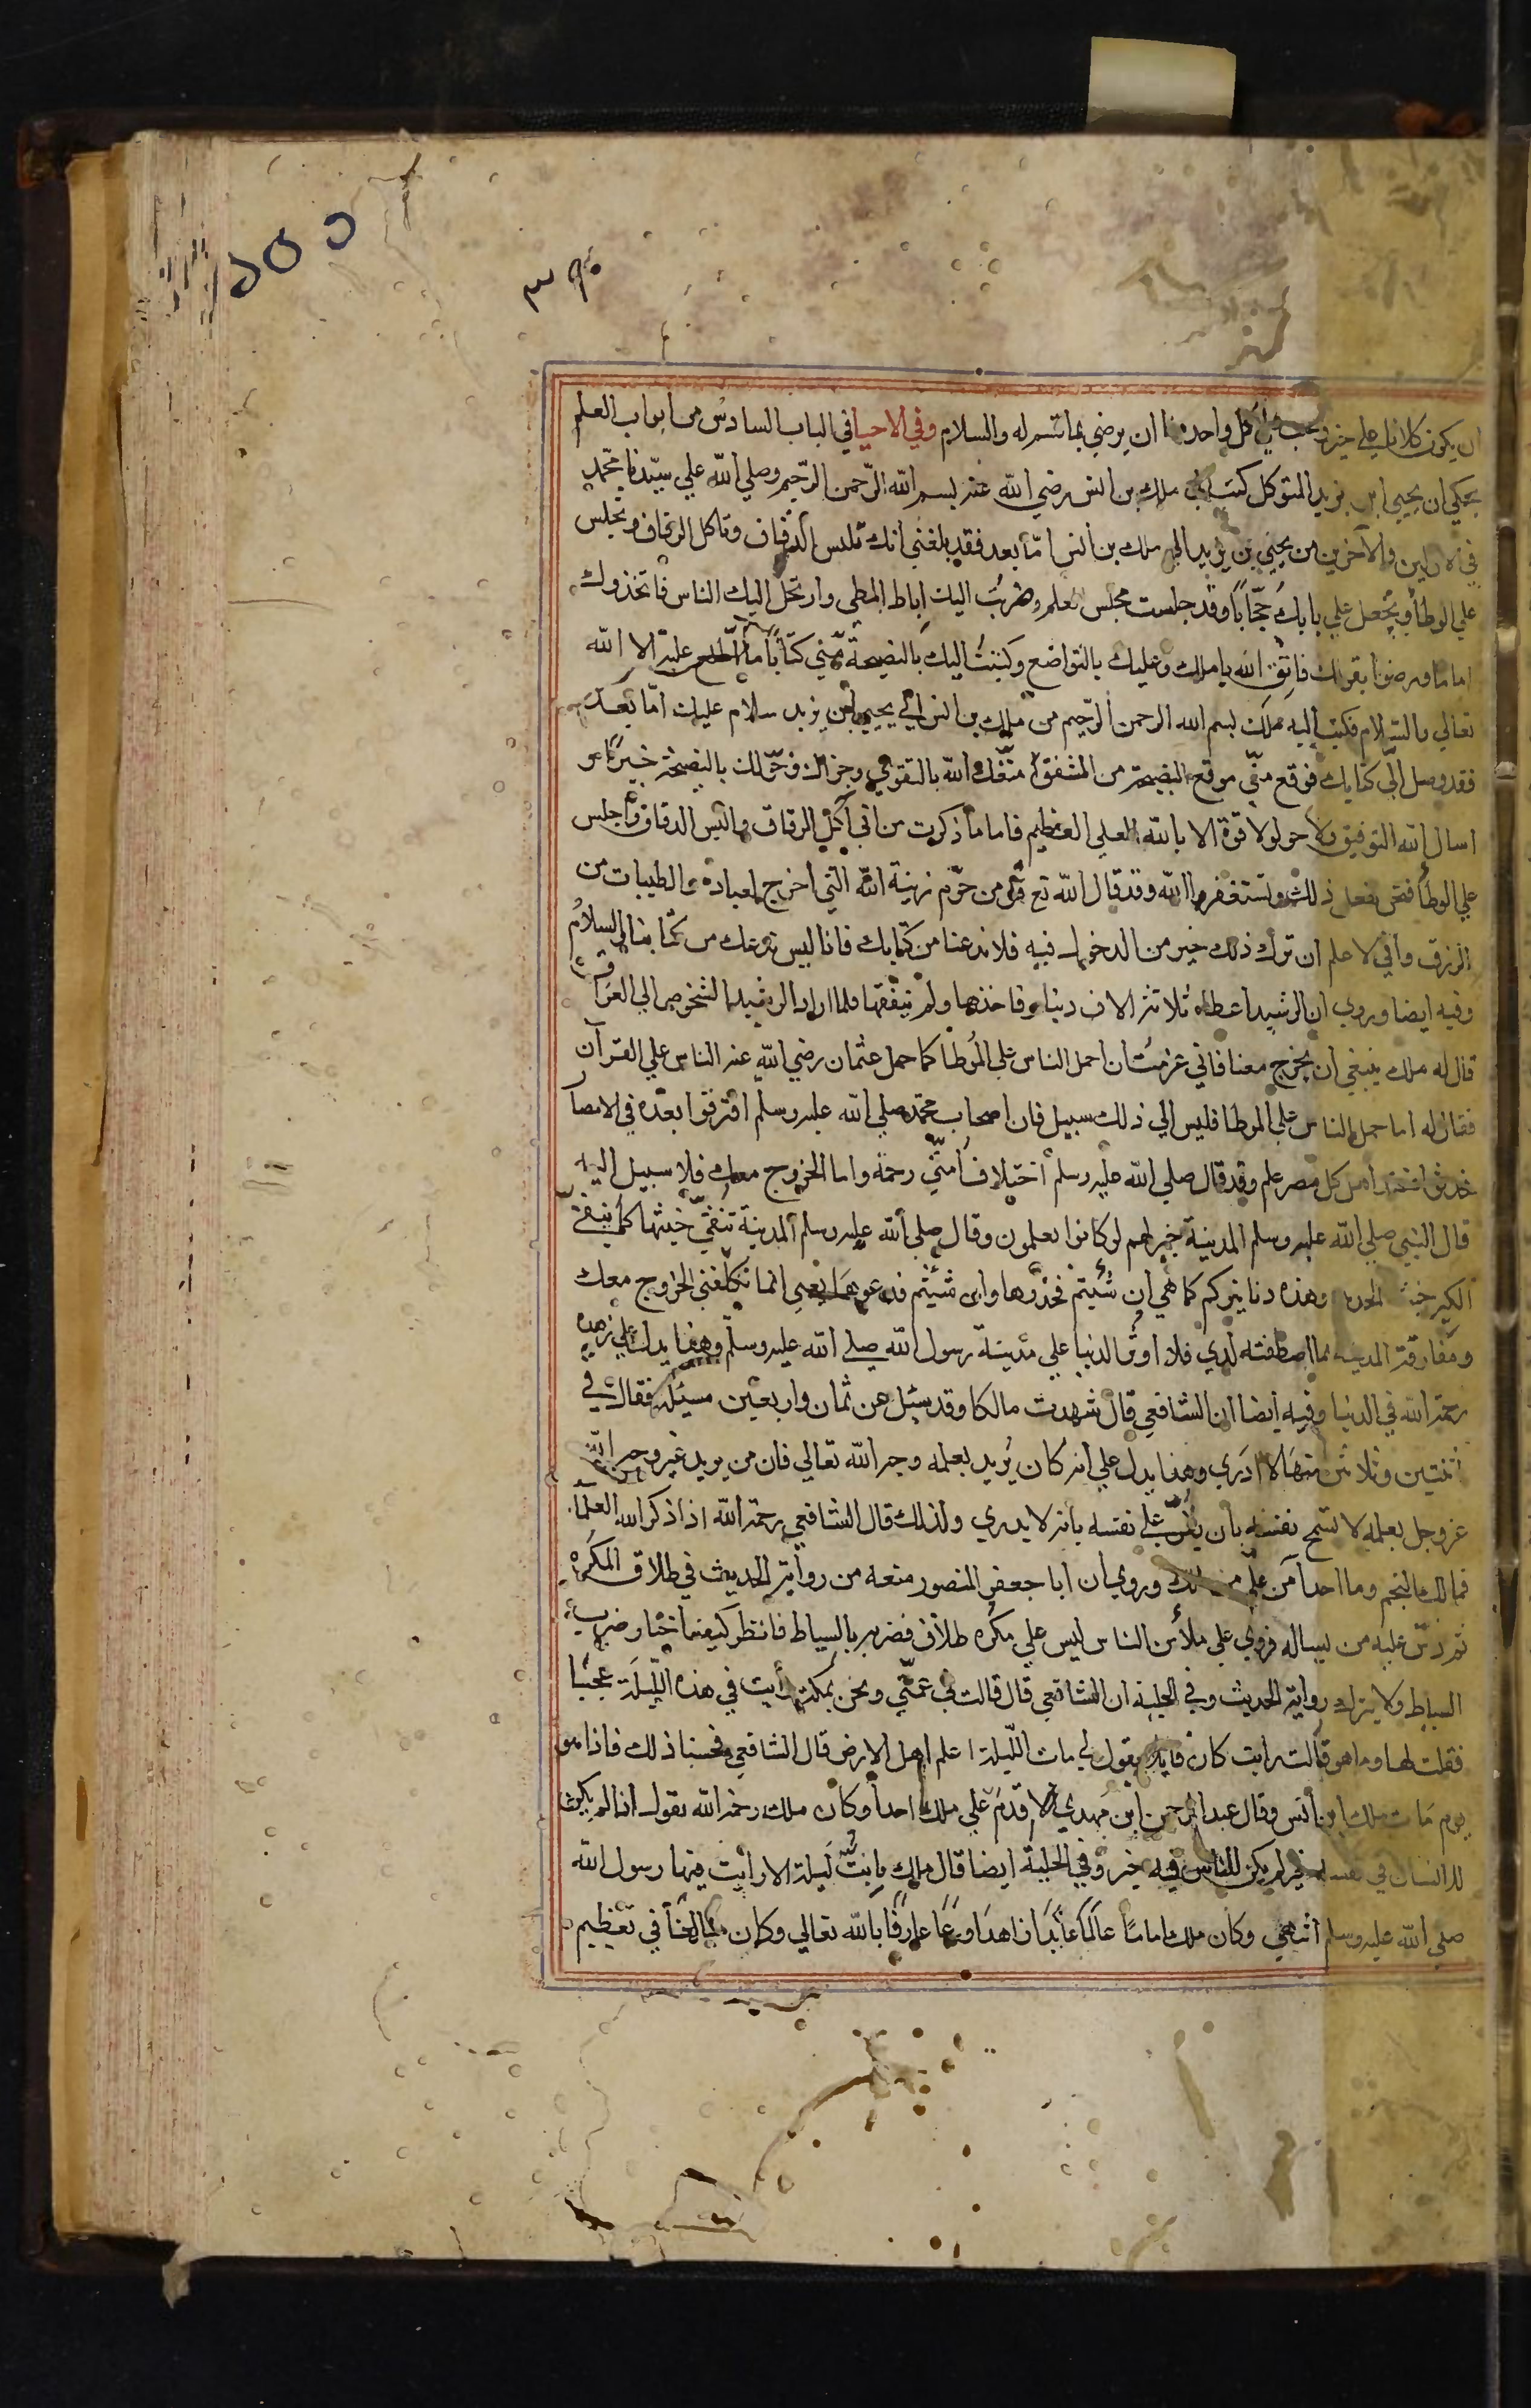 ٣٩٠
ان يكون كلانا علي خير ويجب علي كل واحد منا ان يرضي بما قسم له والسلام وفي الاحيا في الباب السادس من ابواب العلم
يحكي ان يحيي ابن يزيد المتوكل كتب الي ملك بن انس رضي الله عنه بسم الله الرّحمن الرّحيم وصلي الله علي سيّدنا محمّد
في الاولين والاخرين من يحيي بن يزيد الي ملك بن انس امّا بعد فقد بلغني انك تلبس الدقاق وتاكل الرقاق وتجلس
علي الوطأ وتجعل علي بابك حجّابا وقد جلست مجلس العلم وضربت اليك اباط المطي وارتحل اليك الناس فاتخذوك
اماما ورضوا بقولك فاتق الله يا ملك وعليك بالتواضع وكتبت اليك بالنصيحة منّي كتاباً ما اطلع عليه الا الله
تعالي والسّلام فكتب اليه ملك بسم الله الرحمن الرّحيم من ملك بن انس الي يحيي بن يزيد سلام عليك امّا بعد
فقد وصل الّي كتابك فوقع منّي موقع النصيحة من المشفق امتّعك الله بالتقوي وجزاك وخوّلك بالنصيحة خيرًا و
اسال الله التوفيق ولا حول ولا قوّة الا بالله العلي العظيم فاما ما ذكرت من اني اكل الرقاق والبس الدقاق واجلس
علي الوطأ فنحن نفعل ذلك ونستغفر الله وقد قال الله تع قل من حرّم زينة الله التي اخرج لعباده والطيبات من
الرزق واني لاعلم ان ترك ذلك خير من الدخول فيه فلا تدعنا من كتابك فانا ليس ندعك من كتابنا والسلام
وفيه ايضا وروي ان الرشيد اعطاه ثلاثة الاف دينار فاخذها ولم ينفقها فلما اراد الرشيد الشخوص الي العراق
قال له ملك ينبغي ان تخرج معنا فاني عزمت ان احمل الناس علي الموطا كما حمل عثمان رضي الله عنه الناس علي القرآن
فقال له اما حمل الناس علي الموطا فليس الي ذلك سبيل فان اصحاب محمّد صلي الله عليه وسلم افترقوا بعده في الامصار
فحدثوا فعند اهل كل مصر علم وقد قال صلي الله عليه وسلم اختلاف امّتي رحمة واما الخروج معك فلا سبيل اليه
قال النبي صلي الله عليه وسلم المدينة خير لهم لو كانوا يعلمون وقال صلي الله عليه وسلم المدينة تنفي خبثها كما ينفي
الكير خبث الحديد وهذه دنانيركم كما هي ان شئتم فخذوها وان شئتم فدعوها يعني انما تكلفني الخروج معك
ومفارقة المدينة بما اصطفته لدي فلا اوثر الدنيا علي مدينة رسول الله صلي الله عليه وسلم وهذا يدل علي زهده
رحمه الله في الدنيا وفيه ايضا ان الشافعي قال شهدت مالكا وقد سئل عن ثمان واربعين مسئلة فقال في
اثنتين وثلاثين منها لا ادري وهذا يدل علي انه كان يريد بعلمه وجه الله تعالي فان من يريد غير وجه الله
عز وجل بعلمه لا تسمح نفسه بان يقرّ علي نفسه بانه لا يدري ولذلك قال الشافعي رحمه الله اذا ذكر العلمآ
فمالك النجم وما احدا امن علي من ملك وروي ان ابا جعفر المنصور منعه من رواية الحديث في طلاق المكره
ثم دسّ عليه من يساله فروي علي ملأ من الناس ليس علي مكره طلاق فضربه بالسياط فانظر كيف اختار ضرب
السياط ولا يترك رواية الحديث وفي الحلية ان الشافعي قال قالت لي عمّتي ونحن بمكة رأيت في هذه اللّيلة عجبًا
فقلت لها وما هو قالت رايت كان قايلا يقول لي مات اللّيلة اعلم اهل الارض قال الشافعي فحسبنا ذلك فاذا هو
يوم مات ملك ابن أنس وقال عبد الرحمن ابن مهدي لا اقدم علي ملك احداً وكان ملك رحمه الله يقول اذا لم يكن
للانسان في نفسه خير لم يكن للناس فيه خير وفي الحلية ايضا قال ملك ما بتّ ليلة الا رأيت فيها رسول الله
صلي الله عليه وسلم انتهي وكان ملك اماما عالما عابدا زاهدا ورعا عارفا بالله تعالي وكان مبالغا في تعظيم